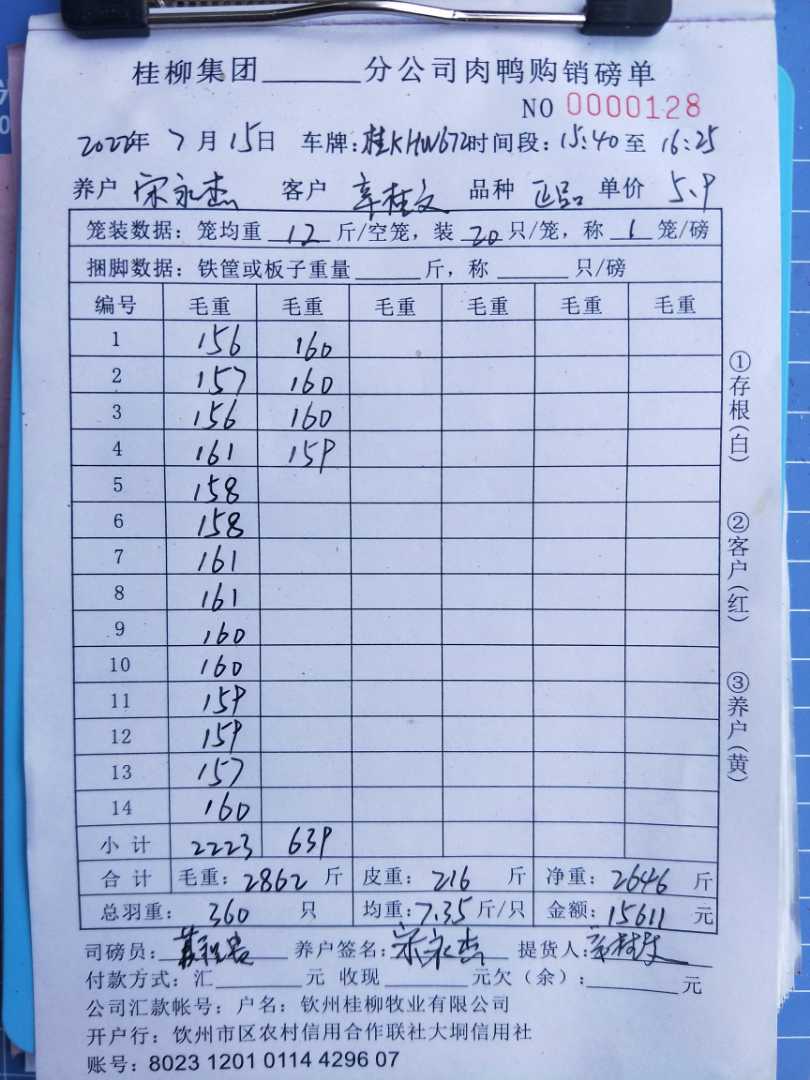 桂柳集团______分公司肉鸭购销磅单
NO 0000128
2022年 7月 15日 车牌:桂KHW672时间段:15:40至 16:25
养户 宋永杰 客户 辛桂文 品种 正品 单价 5.9
笼装数据: 笼均重 12 斤/空笼, 装 20 只/笼, 称 1 笼/磅
捆脚数据: 铁筐或板子重量______斤, 称______只/磅
编号 毛重 毛重 毛重 毛重 毛重 毛重
1 156 160
2 157 160
3 156 160
4 161 159
5 158
6 158
7 161
8 161
9 160
10 160
11 159
12 159
13 157
14 160
小计 2223 639
合计 毛重: 2862 斤 皮重: 216 斤 净重: 2646 斤
总羽重: 360 只 均重: 7.35 斤/只 金额: 15611 元
司磅员: 养户签名: 宋永杰 提货人: 辛桂文
付款方式: 汇______元 收现______元欠(余):______元
公司汇款帐号: 户名: 钦州桂柳牧业有限公司
开户行: 饮州市区农村信用合作联社大垌信用社
账号: 8023 1201 0114 4296 07
①存根(白)
②客户(红)
③养户(黄)